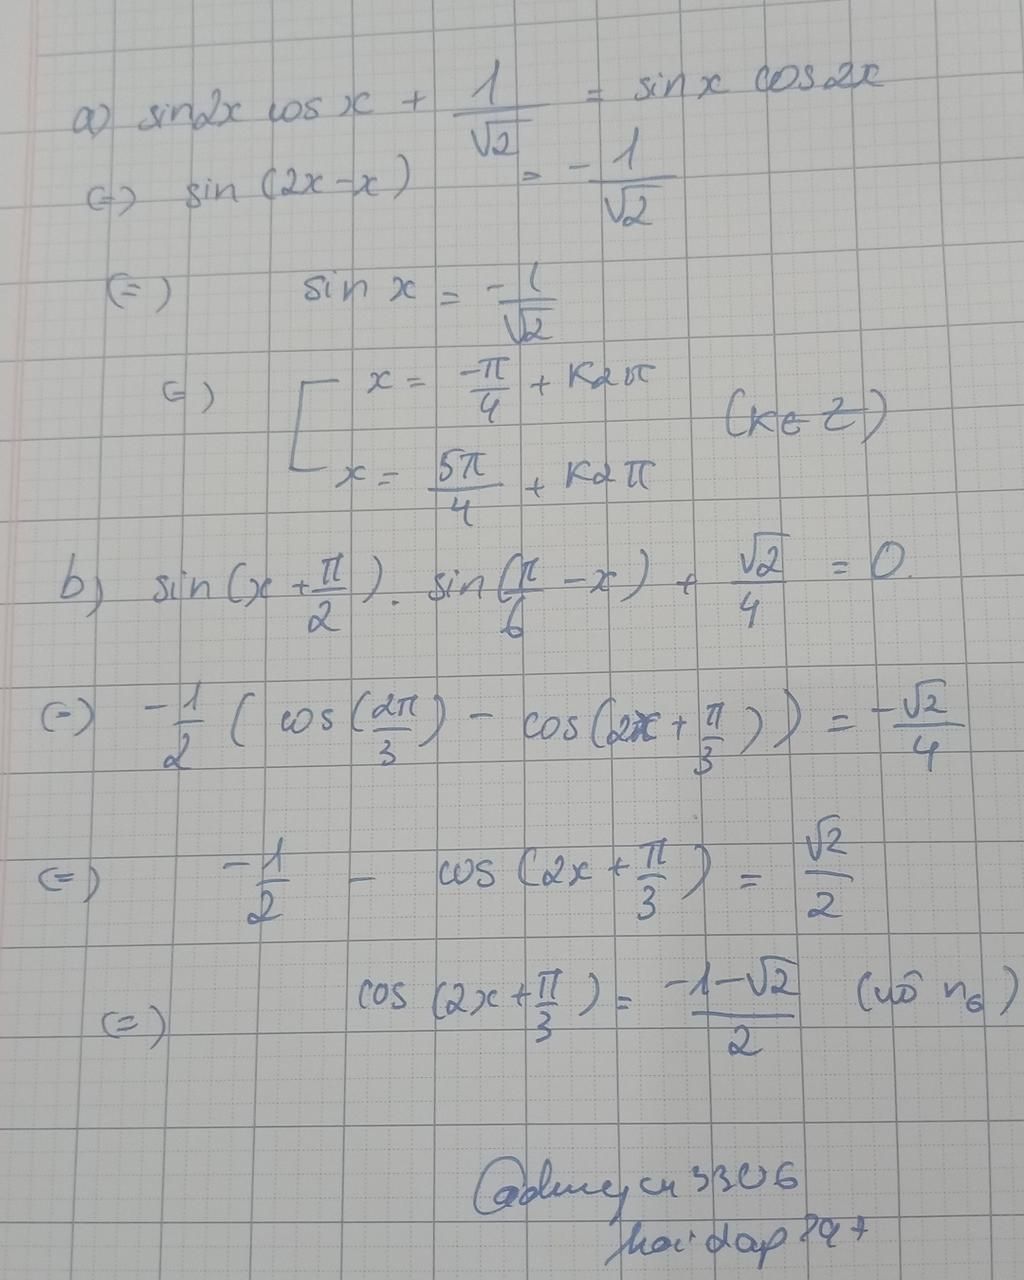 a) sin2x cos x + 1/√2 = sin x cos 2x
(=) sin (2x - x) = - 1/√2
(=) sin x = - 1/√2
(=) [ x = -π/4 + k2π
(k ∈ Z)
x = 5π/4 + k2π
b) sin(x + π/2). sin(π/6 - x) + √2/4 = 0.
(=) -1/2 ( cos(2π/3) - cos(2x + π/3)) = -√2/4
(=) -1/2 - cos (2x + π/3) = √2/2
(=) cos (2x + π/3) = (-1-√2)/2 (vô n6)